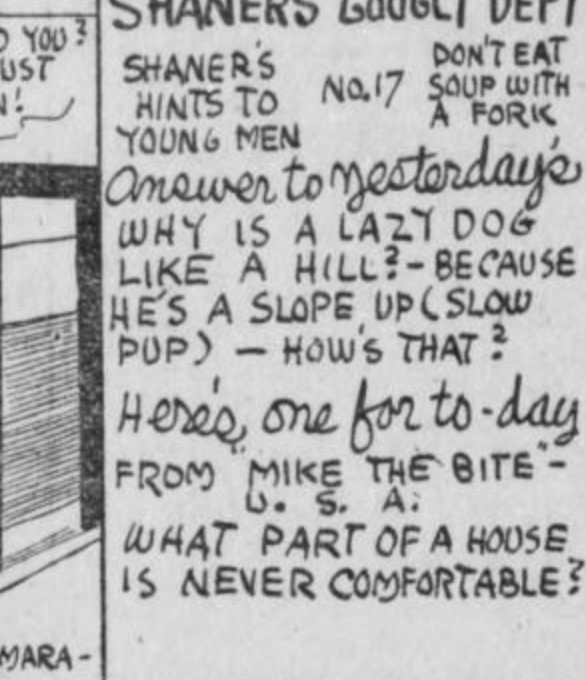 YOU?
UST
N!
MARA-
SHANER'S GOOGLY DEPT
SHANER'S
HINTS TO
YOUNG MEN
NO. 17
DON'T EAT
SOUP WITH
A FORK
Answer to yesterday's
WHY IS A LAZY DOG
LIKE A HILL? - BECAUSE
HE'S A SLOPE UP (SLOW
PUP) - HOW'S THAT?
Here's, one for to-day
FROM "MIKE THE BITE" -
U. S. A.
WHAT PART OF A HOUSE
IS NEVER COMFORTABLE?